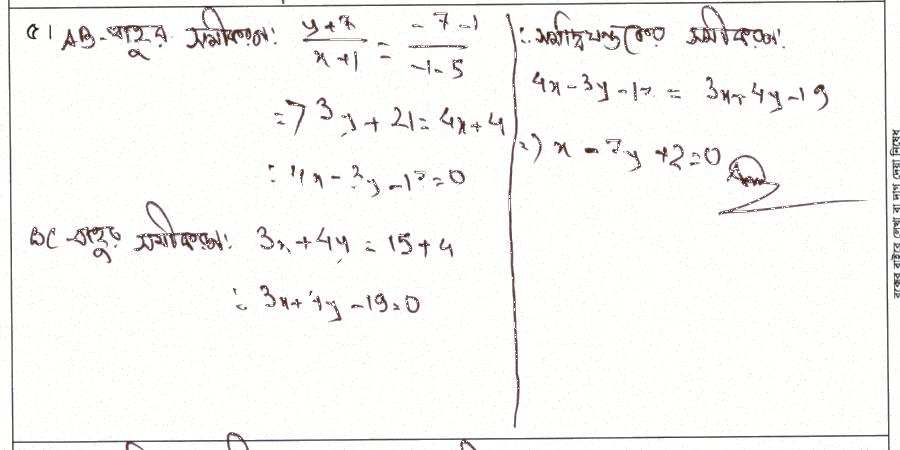 ৫। AB-বাহুর সমীকরণ: (y+7)/(x+1) = (-7-1)/(-1-5)
=> 3y + 21 = 4x + 4
∴ 4x - 3y - 17 = 0
BC বাহুর সমীকরণ: 3x + 4y = 15 + 4
∴ 3x + 4y - 19 = 0
∴ সমদ্বিখন্ডকের সমীকরণ:
4x - 3y - 17 = 3x + 4y - 19
=> x - 7y + 2 = 0 Ans
বক্সের বাইরে লেখা বা দাগ দেয়া নিষেধ